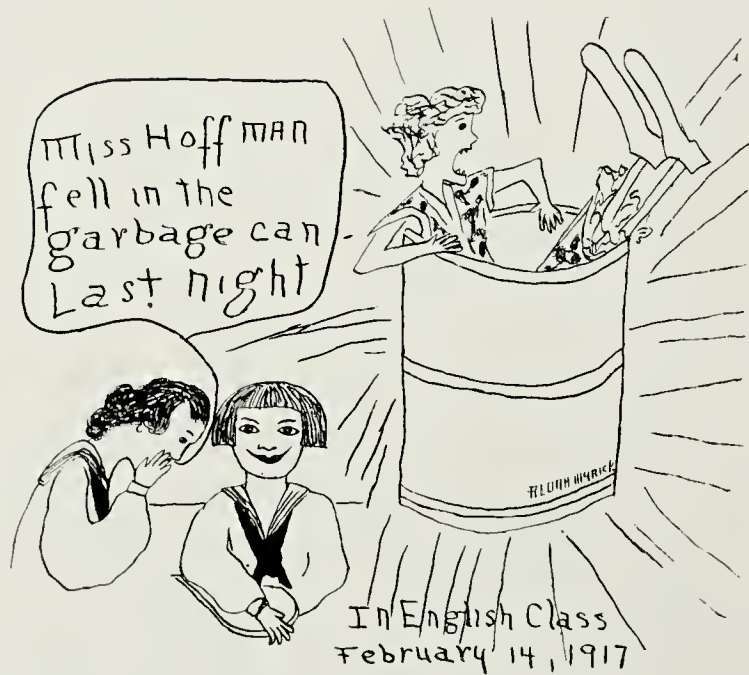 Miss Hoffman
fell in the
garbage can
Last night
In English Class
February 14, 1917